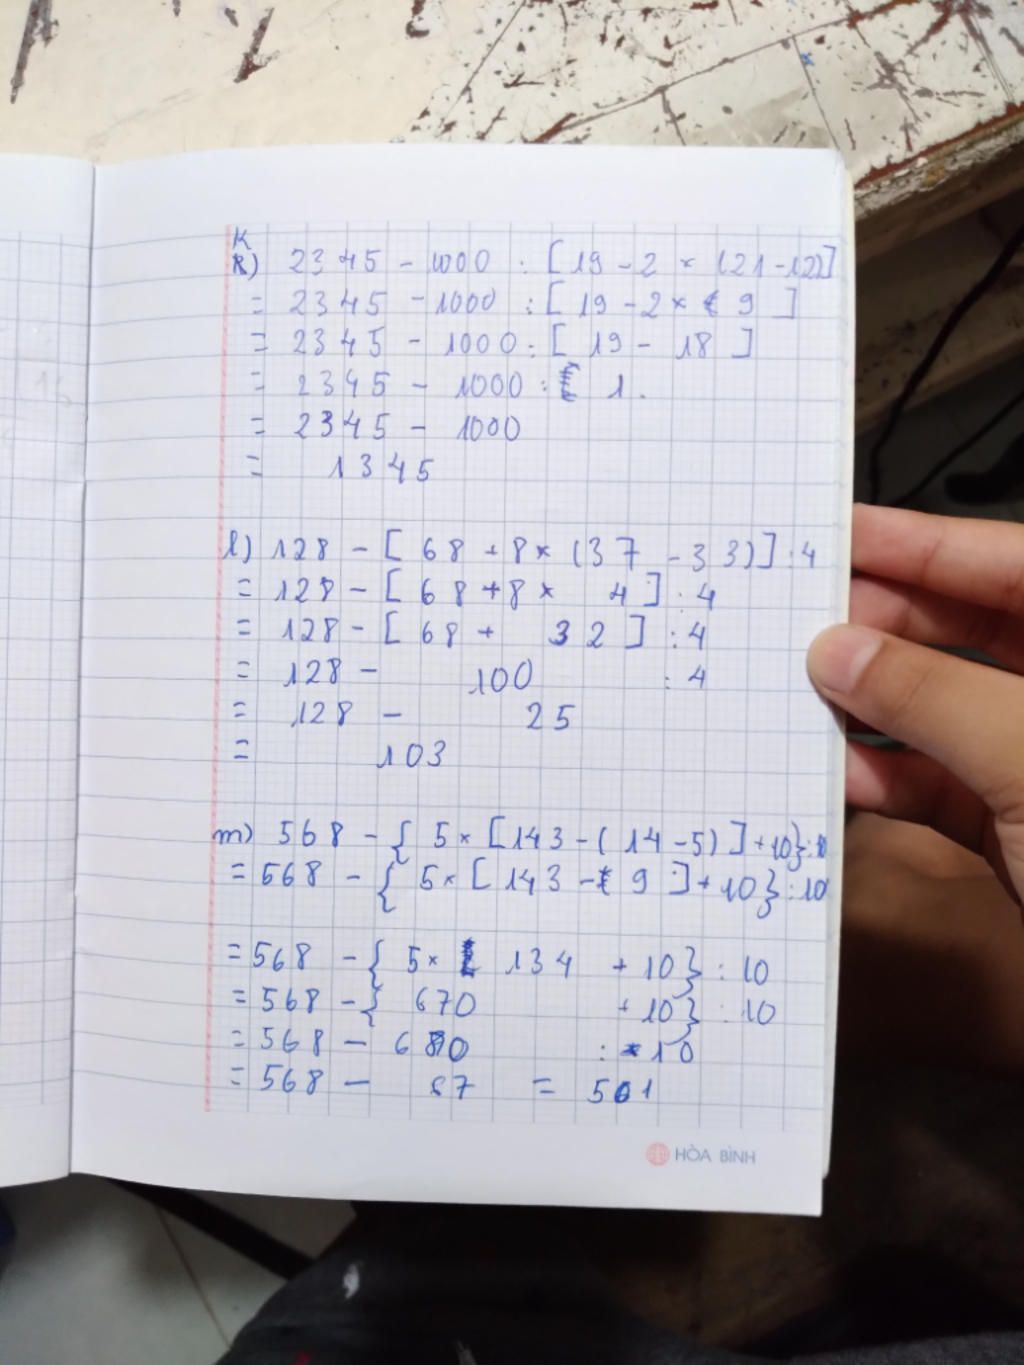 K
k) 2345 - 1000 : [19 - 2 × (21 - 12)]
= 2345 - 1000 : [ 19 - 2 × 9 ]
= 2345 - 1000 : [ 19 - 18 ]
= 2345 - 1000 : 1.
= 2345 - 1000
= 1345
l) 128 - [ 68 + 8 × (37 - 33)] : 4
= 128 - [ 68 + 8 × 4 ] : 4
= 128 - [ 68 + 32 ] : 4
= 128 - 100 : 4
= 128 - 25
= 103
m) 568 - { 5 × [143 - ( 14 - 5) ] + 10} : 10
= 568 - { 5 × [ 143 - 9 ] + 10} : 10
= 568 - { 5 × 134 + 10} : 10
= 568 - { 670 + 10} : 10
= 568 - 680 : 10
= 568 - 67 = 501
HÒA BÌNH